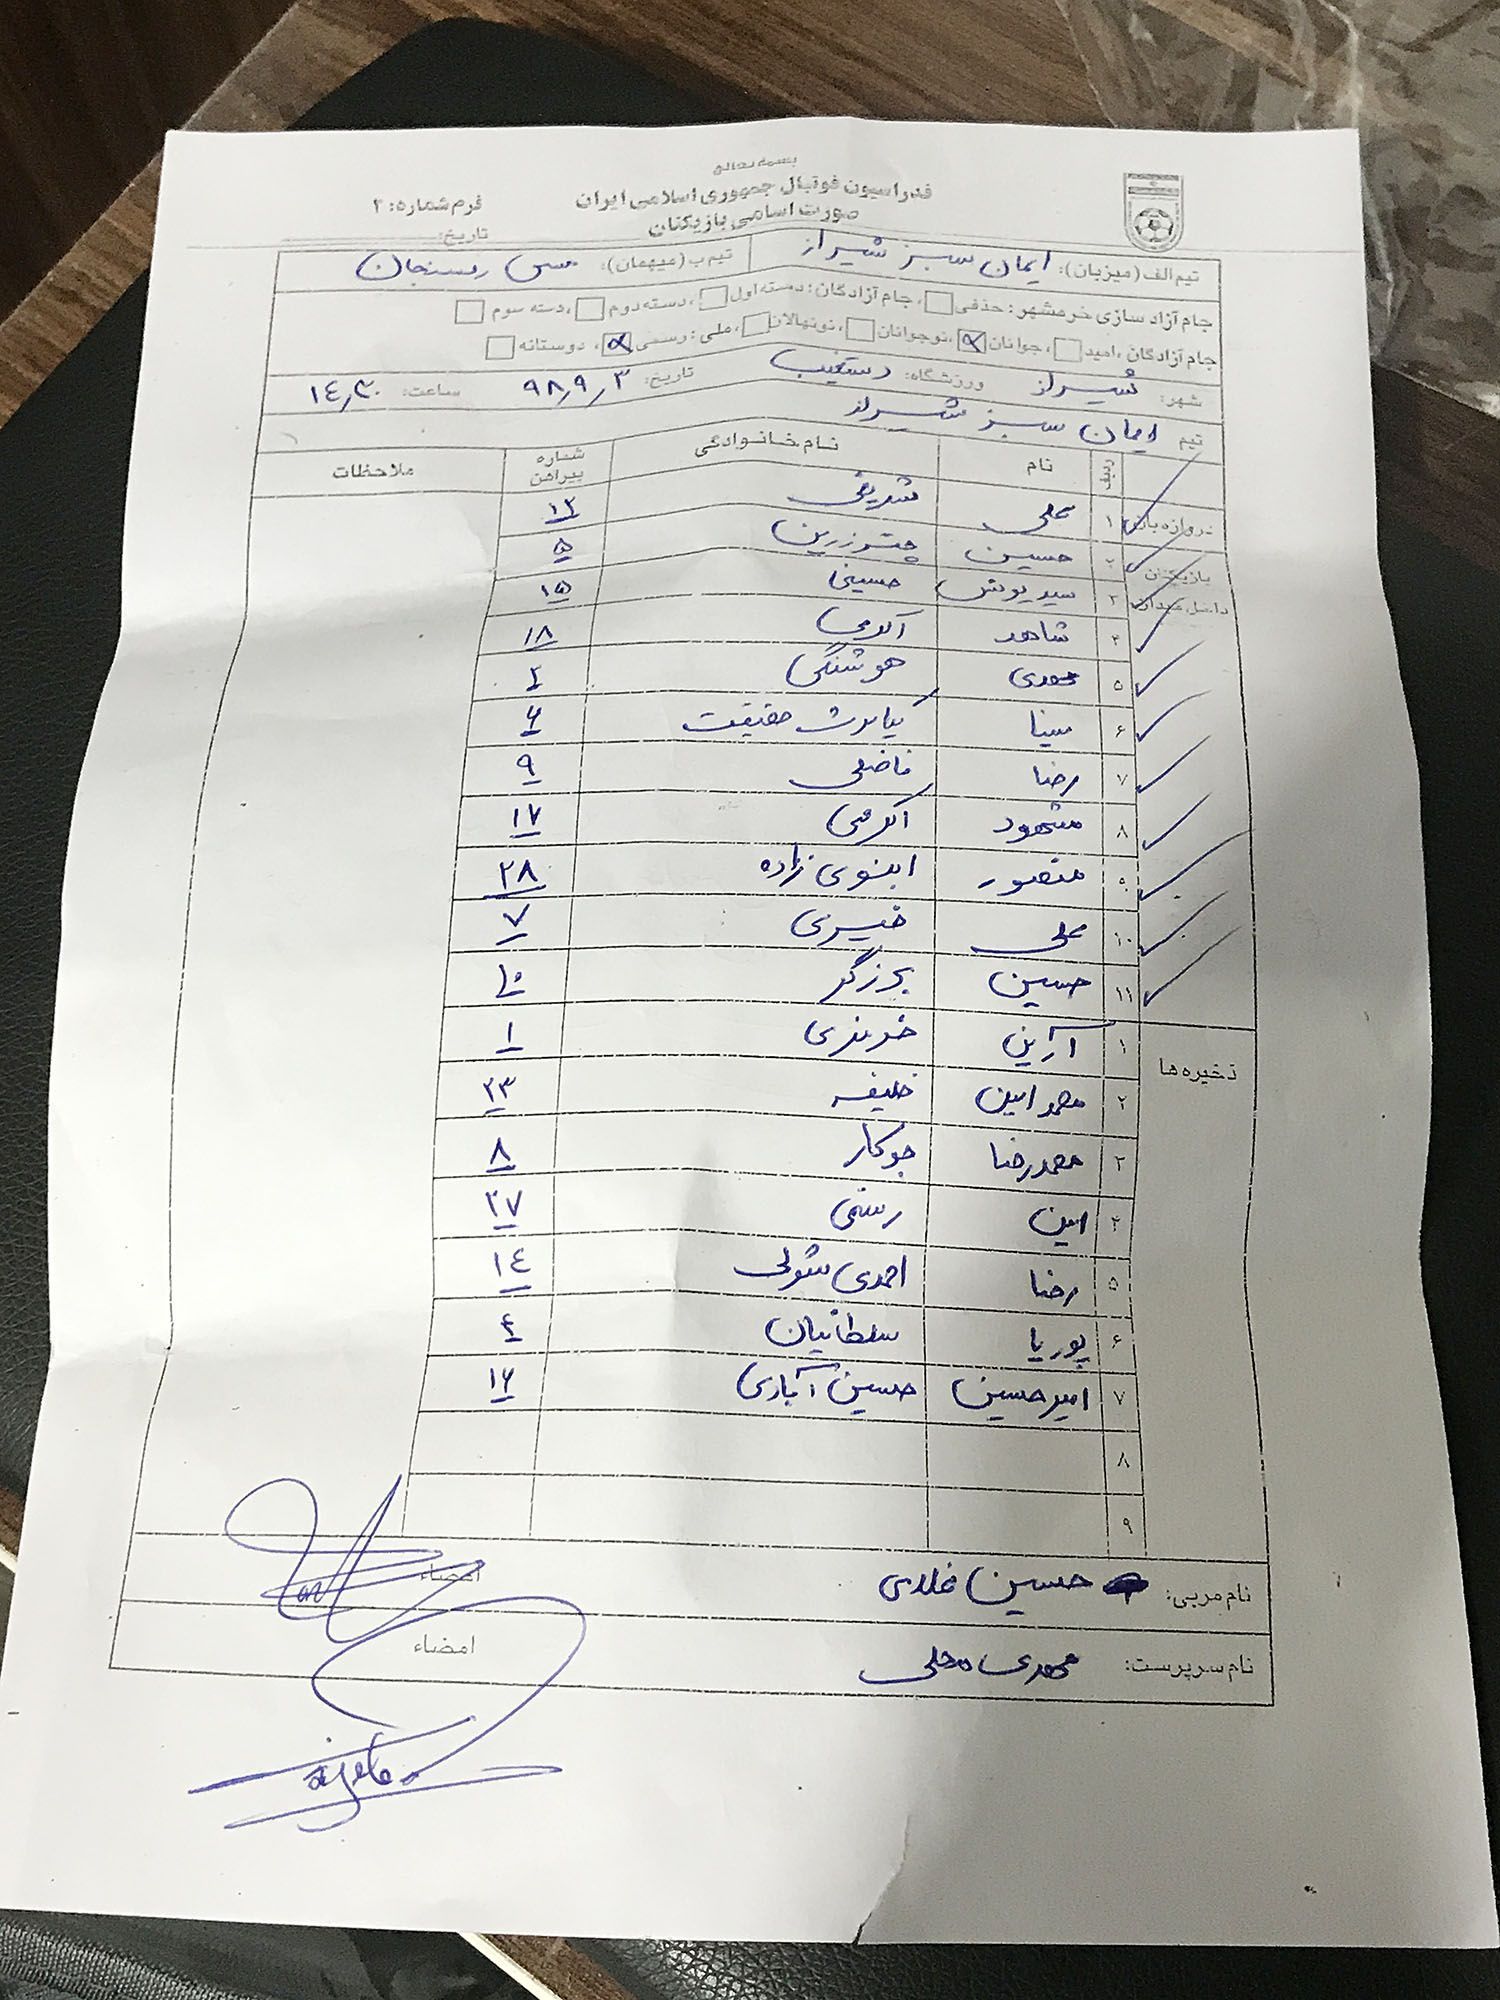 بسمه تعالی
فدراسیون فوتبال جمهوری اسلامی ایران
صورت اسامی بازیکنان
فرم شماره: ۲
تاریخ:
تیم الف (میزبان): ایمان سبز شیراز تیم ب (میهمان): مس رفسنجان
جام آزاد سازی خرمشهر: حذفی، جام آزادگان: دسته اول، دسته دوم، دسته سوم
جام آزادگان، امید، جوانان، نوجوانان، نونهالان، ملی: رسمی، دوستانه
شهر: شیراز ورزشگاه: دستغیب تاریخ: ۹۸,۹,۳ ساعت: ۱٤,۳۰
تیم ایمان سبز شیراز
ردیف نام نام خانوادگی شماره پیراهن ملاحظات
دروازه بان ۱ علی شریفی ۱۲
بازیکنان ۲ حسین چترزرین ۵
داخل میدان ۳ سید یونس حسینی ۱۵
۴ شاهد اکرمی ۱۸
۵ مهدی هوشنگی ۲
۶ سینا کیامرث حقیقت ۶
۷ رضا فاضلی ۹
۸ مشهود اکرمی ۱۷
۹ منصور ابنوی زاده ۲۸
۱۰ علی خیبری ۷
۱۱ حسین برزگر ۱۰
ذخیره ها ۱ آرین ۱
۲ محمدامین خلیفه ۲۳
۳ محمدرضا جوکار ۸
۴ امین رستمی ۲۷
۵ رضا احمدی شولی ۱٤
۶ پوریا سلطانیان ٤
۷ امیرحسین حسین آبادی ۱۶
۸
۹
نام مربی: حسین امضاء
نام سرپرست: مهدی امضاء